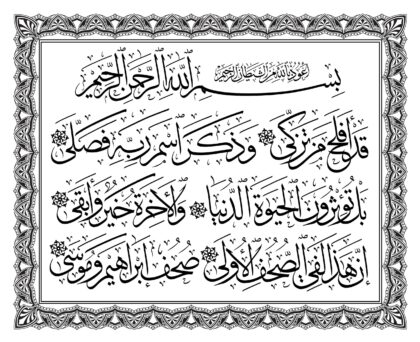 أعوذ بالله من الشيطان الرجيم
بسم الله الرحمن الرحيم
قد أفلح من تزكى وذكر اسم ربه فصلى
بل تؤثرون الحيوة الدنيا والآخرة خير وأبقى
إن هذا لفي الصحف الأولى صحف إبراهيم وموسى